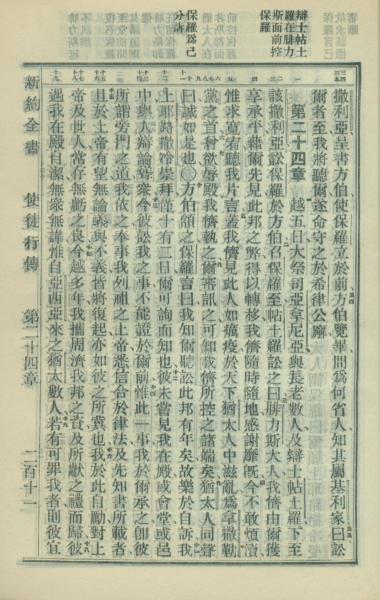 辯士帖土
羅在腓力
斯面前控
保羅
保羅為己
分訴
撒利亞呈書方伯使保羅立於前方伯覽畢問為何省人知其屬基利家曰訟
爾者至我將聽爾遂命守之於希律公廨
第二十四章 越五日大祭司亞拿尼亞與長老數人及辯士帖土羅下至
該撒利亞訟保羅於方伯召保羅至帖土羅訟之曰腓力斯大人我儕由爾獲
享承平藉爾先見此邦之弊得以轉移我儕隨時隨地感謝靡既今不敢煩瀆
惟求寬宥聽我片言蓋我儕見此人如瘟疫於天下猶太人中滋亂為拿撒勒
黨之首種欲辱殿我儕執之爾審訊之可知我儕所控之諸端矣猶太人同聲
曰誠如是也方伯頷之保羅言曰我知爾聽訟此邦有年矣故樂於自訴我
上耶路撒冷崇拜僅十有二日爾可詢而知也彼未嘗見我在殿或會堂或邑
中與人辯論聳眾今彼訟我之事不能證於爾前惟此一事我於爾承之卽彼
所謂旁門之道我依之奉事我列祖之上帝悉信合於律法及先知書所載者
且於上帝有望無論義與不義皆將復起亦如彼之所冀也我於此自勵對上
帝及世人常存無虧之良今越多年我攜周濟我邦之資及所獻之禮而歸彼
遇我在殿自潔無眾無譁惟自亞西亞來之猶太數人若有可罪我者則彼宜
新約全書 使徒行傳 第二十四章 二百十一